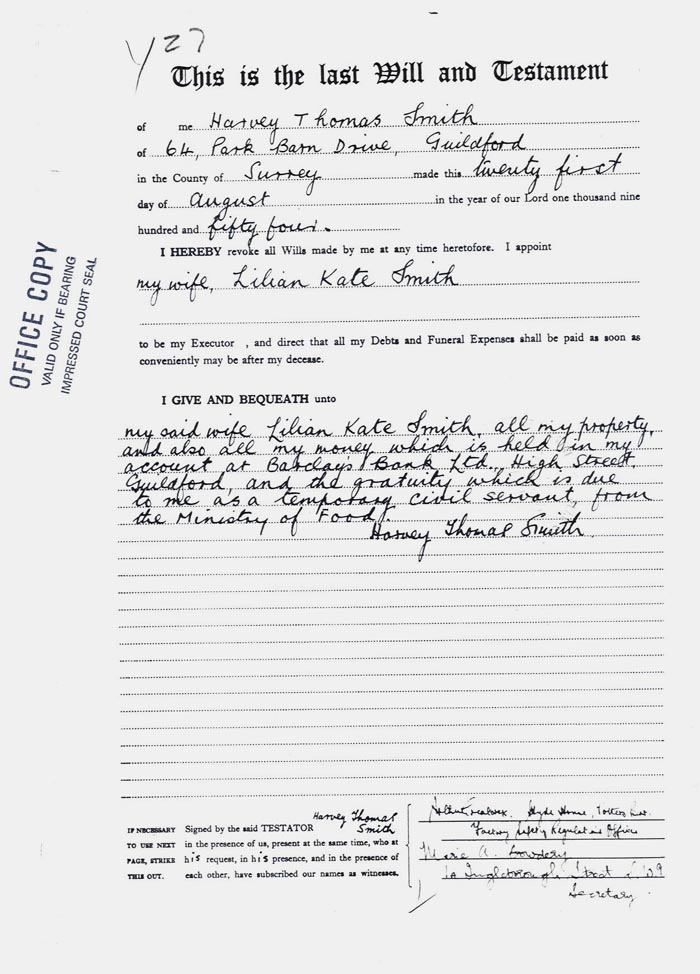 Y27
This is the last Will and Testament
of me Harvey Thomas Smith
of 64, Park Barn Drive, Guildford
in the County of Surrey made this twenty first
day of August in the year of our Lord one thousand nine
hundred and fifty four.
I HEREBY revoke all Wills made by me at any time heretofore. I appoint
my wife, Lilian Kate Smith
to be my Executor , and direct that all my Debts and Funeral Expenses shall be paid as soon as
conveniently may be after my decease.
I GIVE AND BEQUEATH unto
my said wife Lilian Kate Smith, all my property,
and also all my money which is held in my
account at Barclays Bank Ltd., High Street,
Guildford, and the gratuity which is due
to me as a temporary civil servant, from
the Ministry of Food.
Harvey Thomas Smith.
OFFICE COPY
VALID ONLY IF BEARING
IMPRESSED COURT SEAL
IF NECESSARY
TO USE NEXT
PAGE, STRIKE
THIS OUT.
Signed by the said TESTATOR Harvey Thomas Smith
in the presence of us, present at the same time, who at
his request, in his presence, and in the presence of
each other, have subscribed our names as witnesses.
Hyde House,
Factory
Marie A.
1A Street
Secretary.